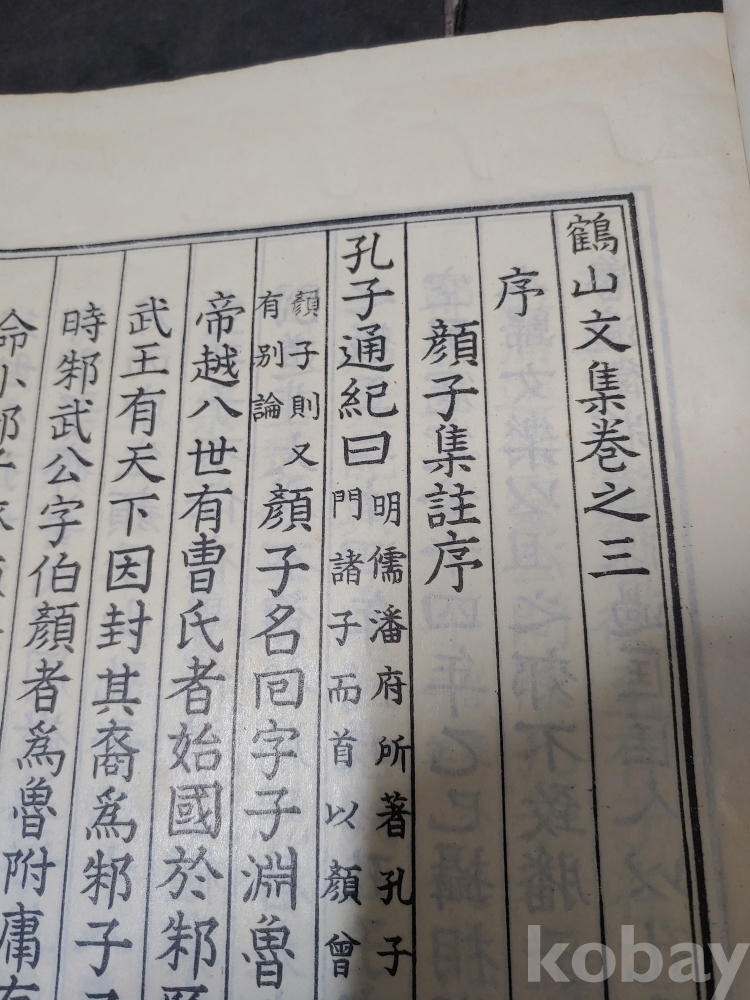 鶴山文集卷之三
序
顔子集註序
孔子通紀曰
明儒潘府所著孔子
門諸子而首以顔曾
顔子則又
有别論
顔子名囬字子淵魯
帝越八世有曹氏者始國於邾
武王有天下因封其裔爲邾子
時邾武公字伯顔者爲魯附庸
命小邾子
kobay